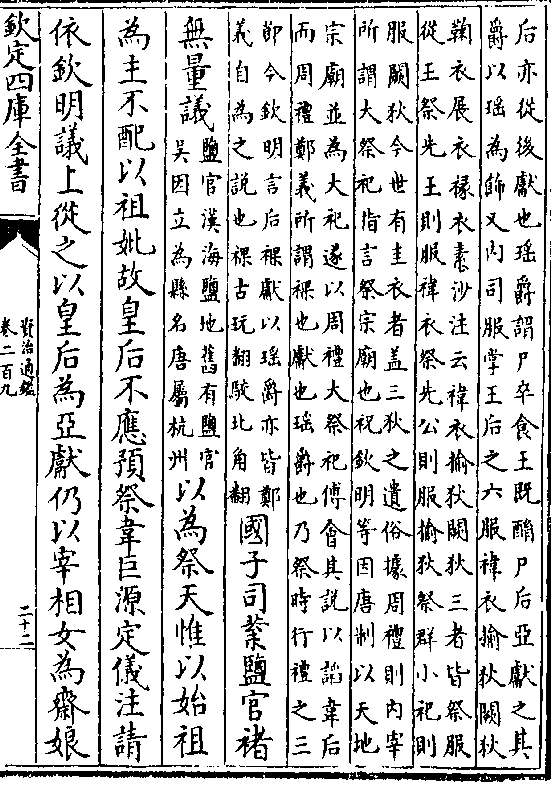 后亦從後獻也瑤爵謂尸卒食王既酳尸后亞獻之其
爵以瑤為飾又内司服掌王后之六服褘衣揄狄闕狄
鞠衣展衣褖衣素沙注云褘衣揄狄闕狄三者皆祭服
從王祭先王則服褘衣祭先公則服揄狄祭群小祀則
服闕狄今世有圭衣者蓋三狄之遺俗據周禮則内宰
所謂大祭祀指言祭宗廟也祝欽明等因唐制以天地
宗廟並為大祀遂以周禮大祭祀傅會其說以謟韋后
而周禮鄭義所謂祼也獻也瑤爵也乃祭時行禮之三
節今欽明言后祼獻以瑤爵亦皆鄭
義自為之説也祼古玩翻駮北角翻
國子司業鹽官褚
無量議
鹽官漢海鹽地舊有鹽官
吳因立為縣名唐屬杭州
以為祭天惟以始祖
為主不配以祖妣故皇后不應預祭韋巨源定儀注請
依欽明議上從之以皇后為亞獻仍以宰相女為齋娘
欽定四庫全書
資治通鑑
卷二百九
二十二